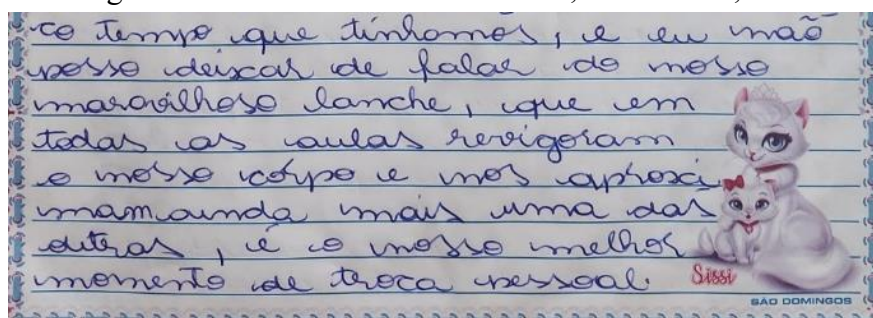 co tempo que tinhamos, e eu não
posso deixar de falar do nosso
maravilhoso lanche, que em
todas as aulas revigoram
o nosso corpo e nos aproxi
mam ainda mais uma das
outras, é o nosso melhor
momento de troca pessoal.
Sissi
SÃO DOMINGOS